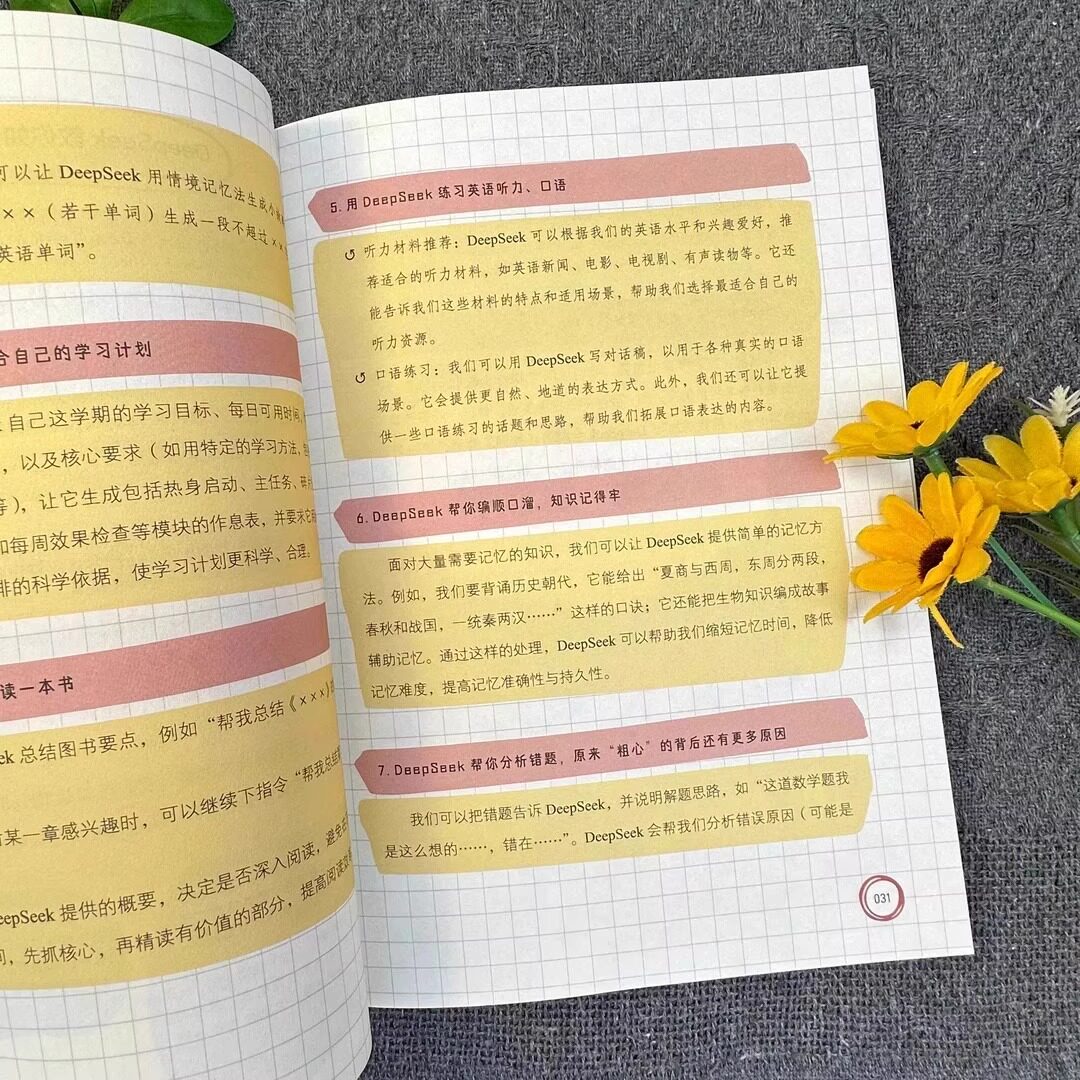 可以让 DeepSeek 用情境记忆法生成小
××（若干单词）生成一段不超过××
英语单词”。
合自己的学习计划
自己这学期的学习目标、每日可用时间
，以及核心要求（如用特定的学习方法，
等），让它生成包括热身启动、主任务、碎
和每周效果检查等模块的作息表，并要求它
排的科学依据，使学习计划更科学、合理。
读一本书
ek 总结图书要点，例如“帮我总结《×××》
某一章感兴趣时，可以继续下指令“帮我总结
eepSeek 提供的概要，决定是否深入阅读，避免
间，先抓核心，再精读有价值的部分，提高阅读效
5. 用 DeepSeek 练习英语听力、口语
听力材料推荐：DeepSeek 可以根据我们的英语水平和兴趣爱好，推
荐适合的听力材料，如英语新闻、电影、电视剧、有声读物等。它还
能告诉我们这些材料的特点和适用场景，帮助我们选择最适合自己的
听力资源。
口语练习：我们可以用 DeepSeek 写对话稿，以用于各种真实的口语
场景。它会提供更自然、地道的表达方式。此外，我们还可以让它提
供一些口语练习的话题和思路，帮助我们拓展口语表达的内容。
6. DeepSeek 帮你编顺口溜，知识记得牢
面对大量需要记忆的知识，我们可以让 DeepSeek 提供简单的记忆方
法。例如，我们要背诵历史朝代，它能给出“夏商与西周，东周分两段，
春秋和战国，一统秦两汉……”这样的口诀；它还能把生物知识编成故事
辅助记忆。通过这样的处理，DeepSeek 可以帮助我们缩短记忆时间，降低
记忆难度，提高记忆准确性与持久性。
7. DeepSeek 帮你分析错题，原来“粗心”的背后还有更多原因
我们可以把错题告诉 DeepSeek，并说明解题思路，如“这道数学题我
是这么想的……，错在……”。DeepSeek 会帮我们分析错误原因（可能是
031